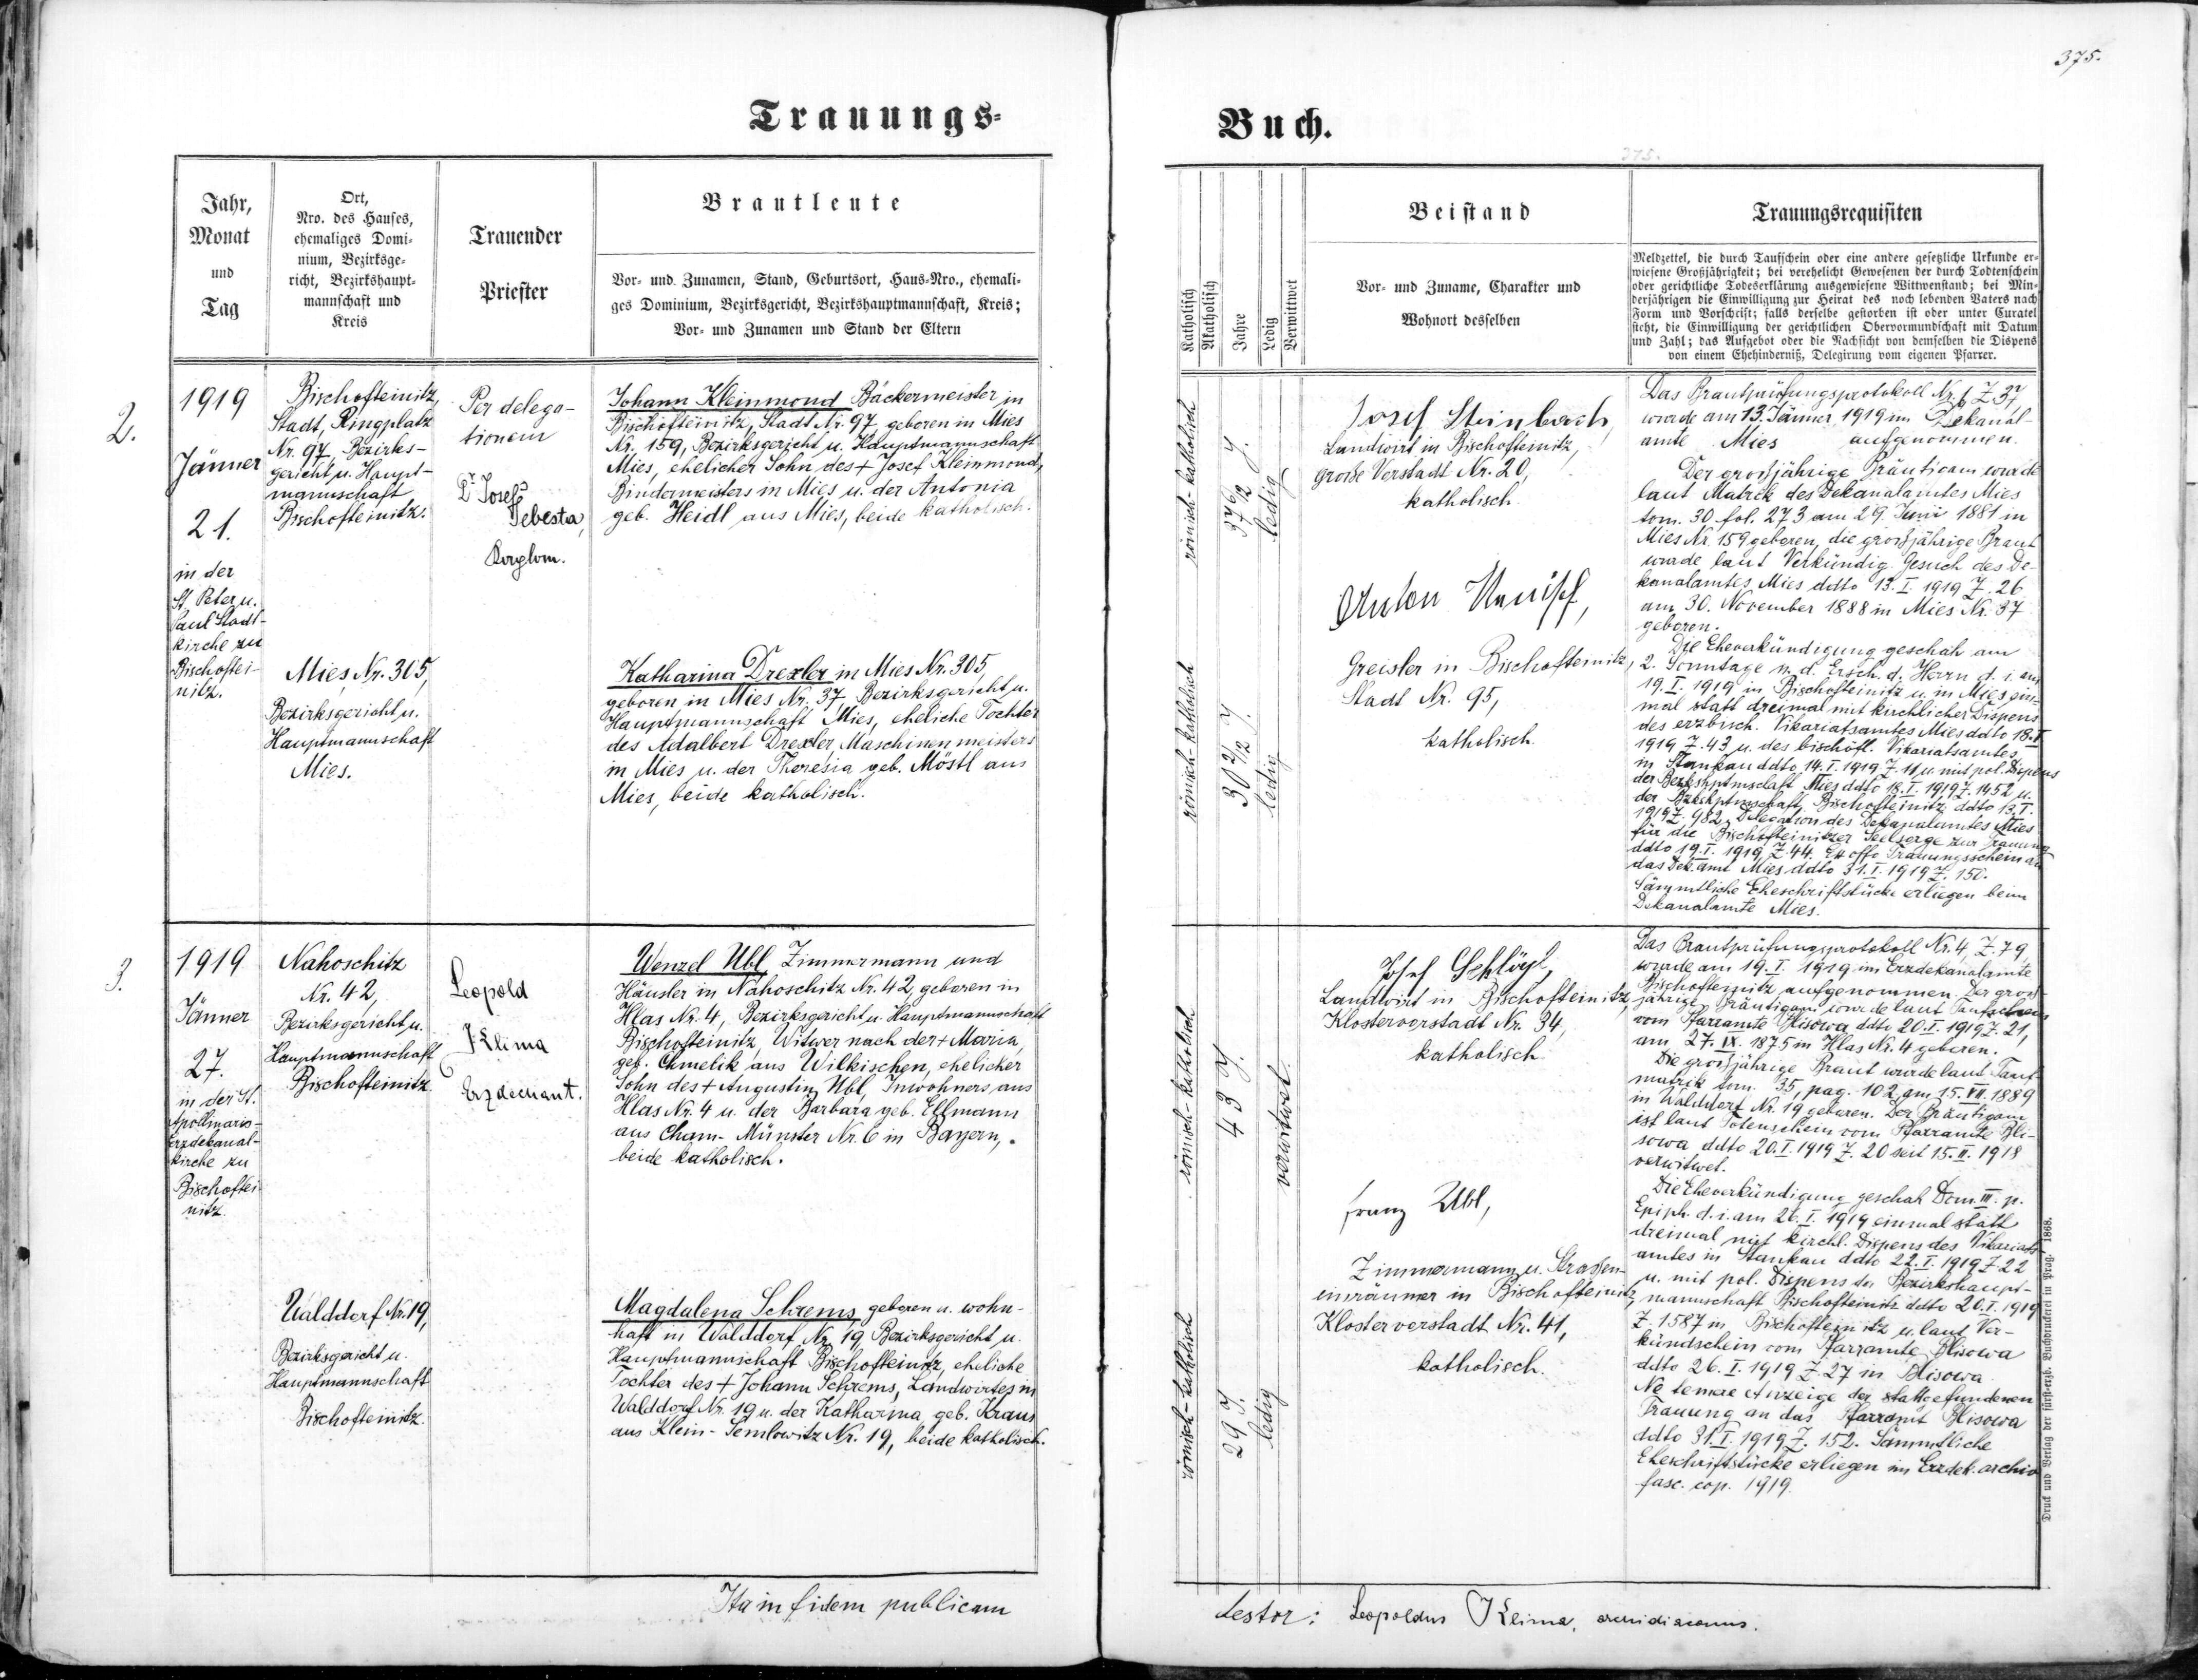 375.
Trauungs-
Buch.
375.
Jahr,
Monat
und
Tag
Ort,
Nro. des Hauses,
ehemaliges Domi-
nium, Bezirksge-
richt, Bezirkshaupt-
mannschaft und
Kreis
Trauender
Priester
Brautleute
Vor- und Zunamen, Stand, Geburtsort, Haus-Nro., ehemali-
ges Dominium, Bezirksgericht, Bezirkshauptmannschaft, Kreis;
Vor- und Zunamen und Stand der Eltern
Katholisch
Akatholisch
Jahre
Ledig
Verwittwet
Beistand
Vor- und Zuname, Charakter und
Wohnort desselben
Trauungsrequisiten
Meldzettel, die durch Taufschein oder eine andere gesetzliche Urkunde er-
wiesene Großjährigkeit; bei verehelicht Gewesenen der durch Todtenschein
oder gerichtliche Todeserklärung ausgewiesene Wittwenstand; bei Min-
derjährigen die Einwilligung zur Heirat des noch lebenden Vaters nach
Form und Vorschrift; falls derselbe gestorben ist oder unter Curatel
steht, die Einwilligung der gerichtlichen Obervormundschaft mit Datum
und Zahl; das Aufgebot oder die Nachsicht von demselben die Dispens
von einem Ehehinderniß, Delegirung vom eigenen Pfarrer.
2.
1919
Jänner
21.
in der
St. Peter u.
Paul Stadt-
kirche zu
Bischoftei-
nitz.
Bischofteinitz,
Stadt, Ringplatz
Nr. 97, Bezirks-
gericht u. Haupt-
mannschaft
Bischofteinitz.
Per delega-
tionem
Dr Josef
Šebesta,
Johann Kleinmond Bäckermeister in
Bischofteinitz, Stadt Nr. 97, geboren in Mies
Nr. 159, Bezirksgericht u. Hauptmannschaft
Mies, ehelicher Sohn des + Josef Kleinmond,
Bindermeisters in Mies u. der Antonia
geb. Heidl aus Mies, beide katholisch.
Mies Nr. 305,
Bezirksgericht u.
Hauptmannschaft
Mies.
Katharina Drexler in Mies Nr. 305,
geboren in Mies Nr. 37 Bezirksgericht u.
Hauptmannschaft Mies, eheliche Tochter
des Adalbert Drexler, Maschinenmeisters
in Mies u. der Theresia geb. Möstl aus
Mies, beide katholisch.
römisch-katholisch
37 6/12 J.
ledig
römisch-katholisch
30 2/12 J.
ledig
Josef Steinbach,
Landwirt in Bischofteinitz,
große Vorstadt Nr. 20,
katholisch.
Anton
Greisler in Bischofteinitz,
Stadt Nr. 95,
katholisch.
Das Brautprüfungsprotokoll Nr. 6 Z 37
wurde am 13. Jänner 1919 im Dekanal-
amte Mies aufgenommen.
Der großjährige Bräutigam wurde
laut Matrik des Dekanalamtes Mies
tom. 30 fol. 273 am 29. Juni 1881 in
Mies Nr. 159 geboren, die großjährige Braut
wurde laut Verkündig. Gesuch des De-
kanalamtes Mies ddto 13. I. 1919 Z. 26
am 30. November 1888 in Mies Nr. 37
geboren.
Die Eheverkündigung geschah am
2. Sonntage n. d. Ersch. d. Herrn d. i. am
19. I. 1919 in Bischofteinitz u. in Mies ein-
mal statt dreimal mit kirchlicher Dispens
des erzbisch. Vikariatsamtes Mies ddto 18. I.
1919 Z. 43 u. des bischöfl. Vikariatsamtes
in Stankau ddto 14. I. 1919 Z. 11 u. mit pol. Dispens
der Bezkshptmschaft Mies ddto 18. I. 1919 Z. 1952 u.
der Bzkshptmschaft Bischofteinitz ddto 13. I.
1919 Z. 982, Delegation des Dekanalamtes Mies
für die Bischofteinitzer Seelsorge zur Trauung
ddto 19. I. 1919, Z. 44. Ex offo Trauungsschein an
das Dek. amt Mies ddto 31. I. 1919 Z. 150.
Sämmtliche Eheschriftstücke erliegen beim
Dekanalamte Mies.
3.
1919
Jänner
27.
in der St.
Apollinaris-
Erzdekanal-
kirche zu
Bischoftei-
nitz.
Nahoschitz
Nr. 42,
Bezirksgericht u.
Hauptmannschaft
Bischofteinitz
Leopold
Klima
Erzdechant.
Wenzel Ubl, Zimmermann und
Häusler in Nahoschitz Nr. 42, geboren in
Hlas Nr. 4, Bezirksgericht u. Hauptmannschaft
Bischofteinitz, Witwer nach der + Maria,
geb. Chmelik aus Wilkischen, ehelicher
Sohn des + Augustin Ubl, Inwohners aus
Hlas Nr. 4 u. der Barbara geb. Ellmann
aus Cham-Münster Nr. 6 in Bayern,
beide katholisch.
Walddorf Nr. 19,
Bezirksgericht u.
Hauptmannschaft
Bischofteinitz.
Magdalena Schrems, geboren u. wohn-
haft in Walddorf Nr. 19 Bezirksgericht u.
Hauptmannschaft Bischofteinitz, eheliche
Tochter des + Johann Schrems, Landwirtes in
Walddorf Nr. 19 u. der Katharina, geb. Kraus
aus Klein-Semlowitz Nr. 19, beide katholisch.
römisch-katholisch
43 J.
verwitwet
römisch-katholisch
29 J.
ledig
Josef Schlögl,
Landwirt in Bischofteinitz,
Klostervorstadt Nr. 34,
katholisch.
Franz Ubl,
Zimmermann u. Strassen-
einräumer in Bischofteinitz,
Klostervorstadt Nr. 41,
katholisch.
Das Brautprüfungsprotokoll Nr. 4, Z. 79,
wurde am 19. I. 1919 im Erzdekanalamte
Bischofteinitz aufgenommen. Der gross-
jährige Bräutigam wurde laut Taufschein
vom Pfarramte Blisowa ddto 20. I. 1919 Z. 21,
am 27. IX. 1875 in Hlas Nr. 4 geboren.
Die großjährige Braut wurde laut Tauf-
matrik tom. 35, pag. 102, am 15. VII. 1889
in Walddorf Nr. 19 geboren. Der Bräutigam
ist laut Totenschein vom Pfarramte Bli-
sowa ddto 20. I. 1919 Z. 20 seit 15. II. 1918
verwitwet.
Die Eheverkündigung geschah Dom. III. p.
Epiph. d. i. am 26. I. 1919 einmal statt
dreimal mit kirchl. Dispens des Vikariats-
amtes in Stankau ddto 22. I. 1919 Z. 22
u. mit pol. Dispens der Bezirkshaupt-
mannschaft Bischofteinitz ddto 20. I. 1919
Z. 1587 in Bischofteinitz u. laut Ver-
kündschein vom Pfarramte Blisowa
ddto 26. I. 1919 Z 27 in Blisowa.
Ne temere Anzeige der stattgefundenen
Trauung an das Pfarramt Blisowa
ddto 31. I. 1919 Z. 152. Sämmtliche
Eheschriftstücke erliegen im Erzdek. archiv
fasc. cop. 1919.
Druck und Verlag der fürst-erzb. Buchdruckerei in Prag. 1868.
Ita in fidem publicam
testor: Leopoldus Klima, archidiaconus.